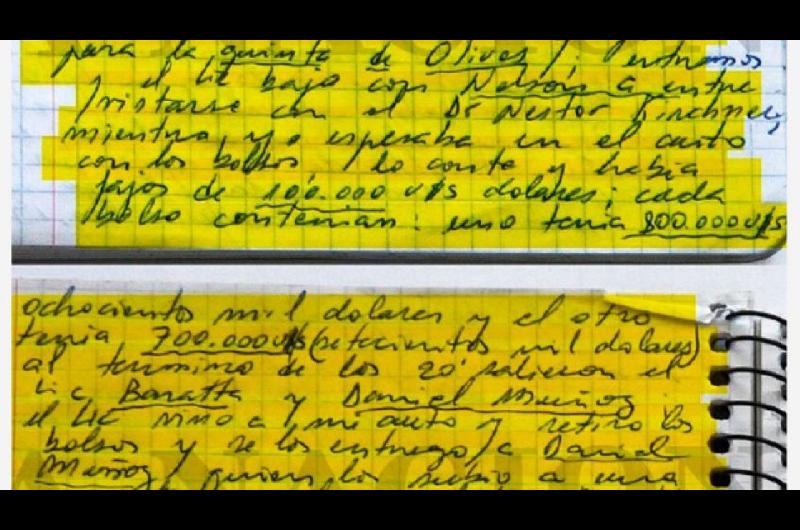 para la quinta de Olivos /: entramos
y el Lic bajo con Nelson a entre
/vistarse con el Dr Nestor Kirchner,
mientra yo esperaba en el auto
con los bolsos / lo conte y habia
fajos de 100.000 u/s dolares; cada
/bolso contenian: uno tenia 800.000 u/s
ochocientos mil dolares y el otro
tenia 700.000 u/s (setecientos mil dolares)
al termino de los 20' salieron el
Lic Baratta y Daniel Muñoz
el Lic vino a mi auto y retiro los
bolsos y se los entrego / a Daniel
Muñoz / quien los subio a una